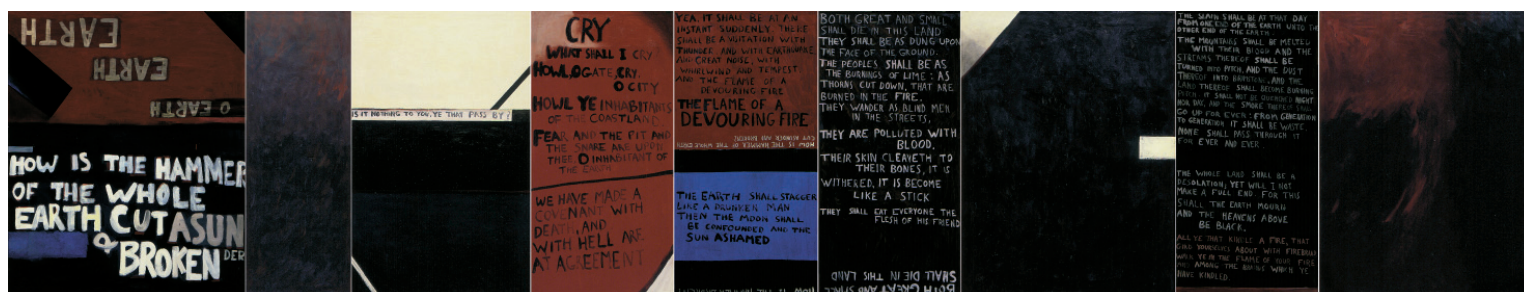 EARTH
EARTH
EARTH
O EARTH
HOW IS THE HAMMER
OF THE WHOLE
EARTH CUT ASUN
DER
& BROKEN
IS IT NOTHING TO YOU, YE THAT PASS BY?
CRY
WHAT SHALL I CRY
HOWL, O GATE, CRY.
O CITY
HOWL YE INHABITANTS
OF THE COASTLAND.
FEAR AND THE PIT AND
THE SNARE ARE UPON
THEE O INHABITANT OF
THE EARTH
WE HAVE MADE A
COVENANT WITH
DEATH, AND
WITH HELL ARE
AT AGREEMENT
YEA, IT SHALL BE AT AN
INSTANT SUDDENLY. THERE
SHALL BE A VISITATION WITH
THUNDER AND WITH EARTHQUAKE
AND GREAT NOISE, WITH
WHIRLWIND AND TEMPEST,
AND THE FLAME OF A
DEVOURING FIRE
THE FLAME OF A
DEVOURING FIRE
HOW IS THE HAMMER OF THE WHOLE EARTH
CUT ASUNDER AND BROKEN
THE EARTH SHALL STAGGER
LIKE A DRUNKEN MAN
THEN THE MOON SHALL
BE CONFOUNDED AND THE
SUN ASHAMED
HOW IS THE
BOTH GREAT AND SMALL
SHALL DIE IN THIS LAND
THEY SHALL BE AS DUNG UPON
THE FACE OF THE GROUND.
THE PEOPLES SHALL BE AS
THE BURNINGS OF LIME: AS
THORNS CUT DOWN, THAT ARE
BURNED IN THE FIRE.
THEY WANDER AS BLIND MEN
IN THE STREETS,
THEY ARE POLLUTED WITH
BLOOD.
THEIR SKIN CLEAVETH TO
THEIR BONES, IT IS
WITHERED, IT IS BECOME
LIKE A STICK
THEY SHALL EAT EVERYONE THE
FLESH OF HIS FRIEND
BOTH GREAT AND SMALL
SHALL DIE IN THIS LAND
THE SLAIN SHALL BE AT THAT DAY
FROM ONE END OF THE EARTH UNTO THE
OTHER END OF THE EARTH.
THE MOUNTAINS SHALL BE MELTED
WITH THEIR BLOOD AND THE
STREAMS THEREOF SHALL BE
TURNED INTO PITCH, AND THE DUST
THEREOF INTO BRIMSTONE, AND THE
LAND THEREOF SHALL BECOME BURNING
PITCH. IT SHALL NOT BE QUENCHED NIGHT
NOR DAY, AND THE SMOKE THEREOF SHALL
GO UP FOR EVER: FROM GENERATION
TO GENERATION IT SHALL BE WASTE.
NONE SHALL PASS THROUGH IT
FOR EVER AND EVER
THE WHOLE LAND SHALL BE A
DESOLATION; YET WILL I NOT
MAKE A FULL END. FOR THIS
SHALL THE EARTH MOURN
AND THE HEAVENS ABOVE
BE BLACK.
ALL YE THAT KINDLE A FIRE, THAT
GIRD YOURSELVES ABOUT WITH FIREBRANDS
WALK YE IN THE FLAME OF YOUR FIRE
AND AMONG THE BRANDS WHICH YE
HAVE KINDLED.